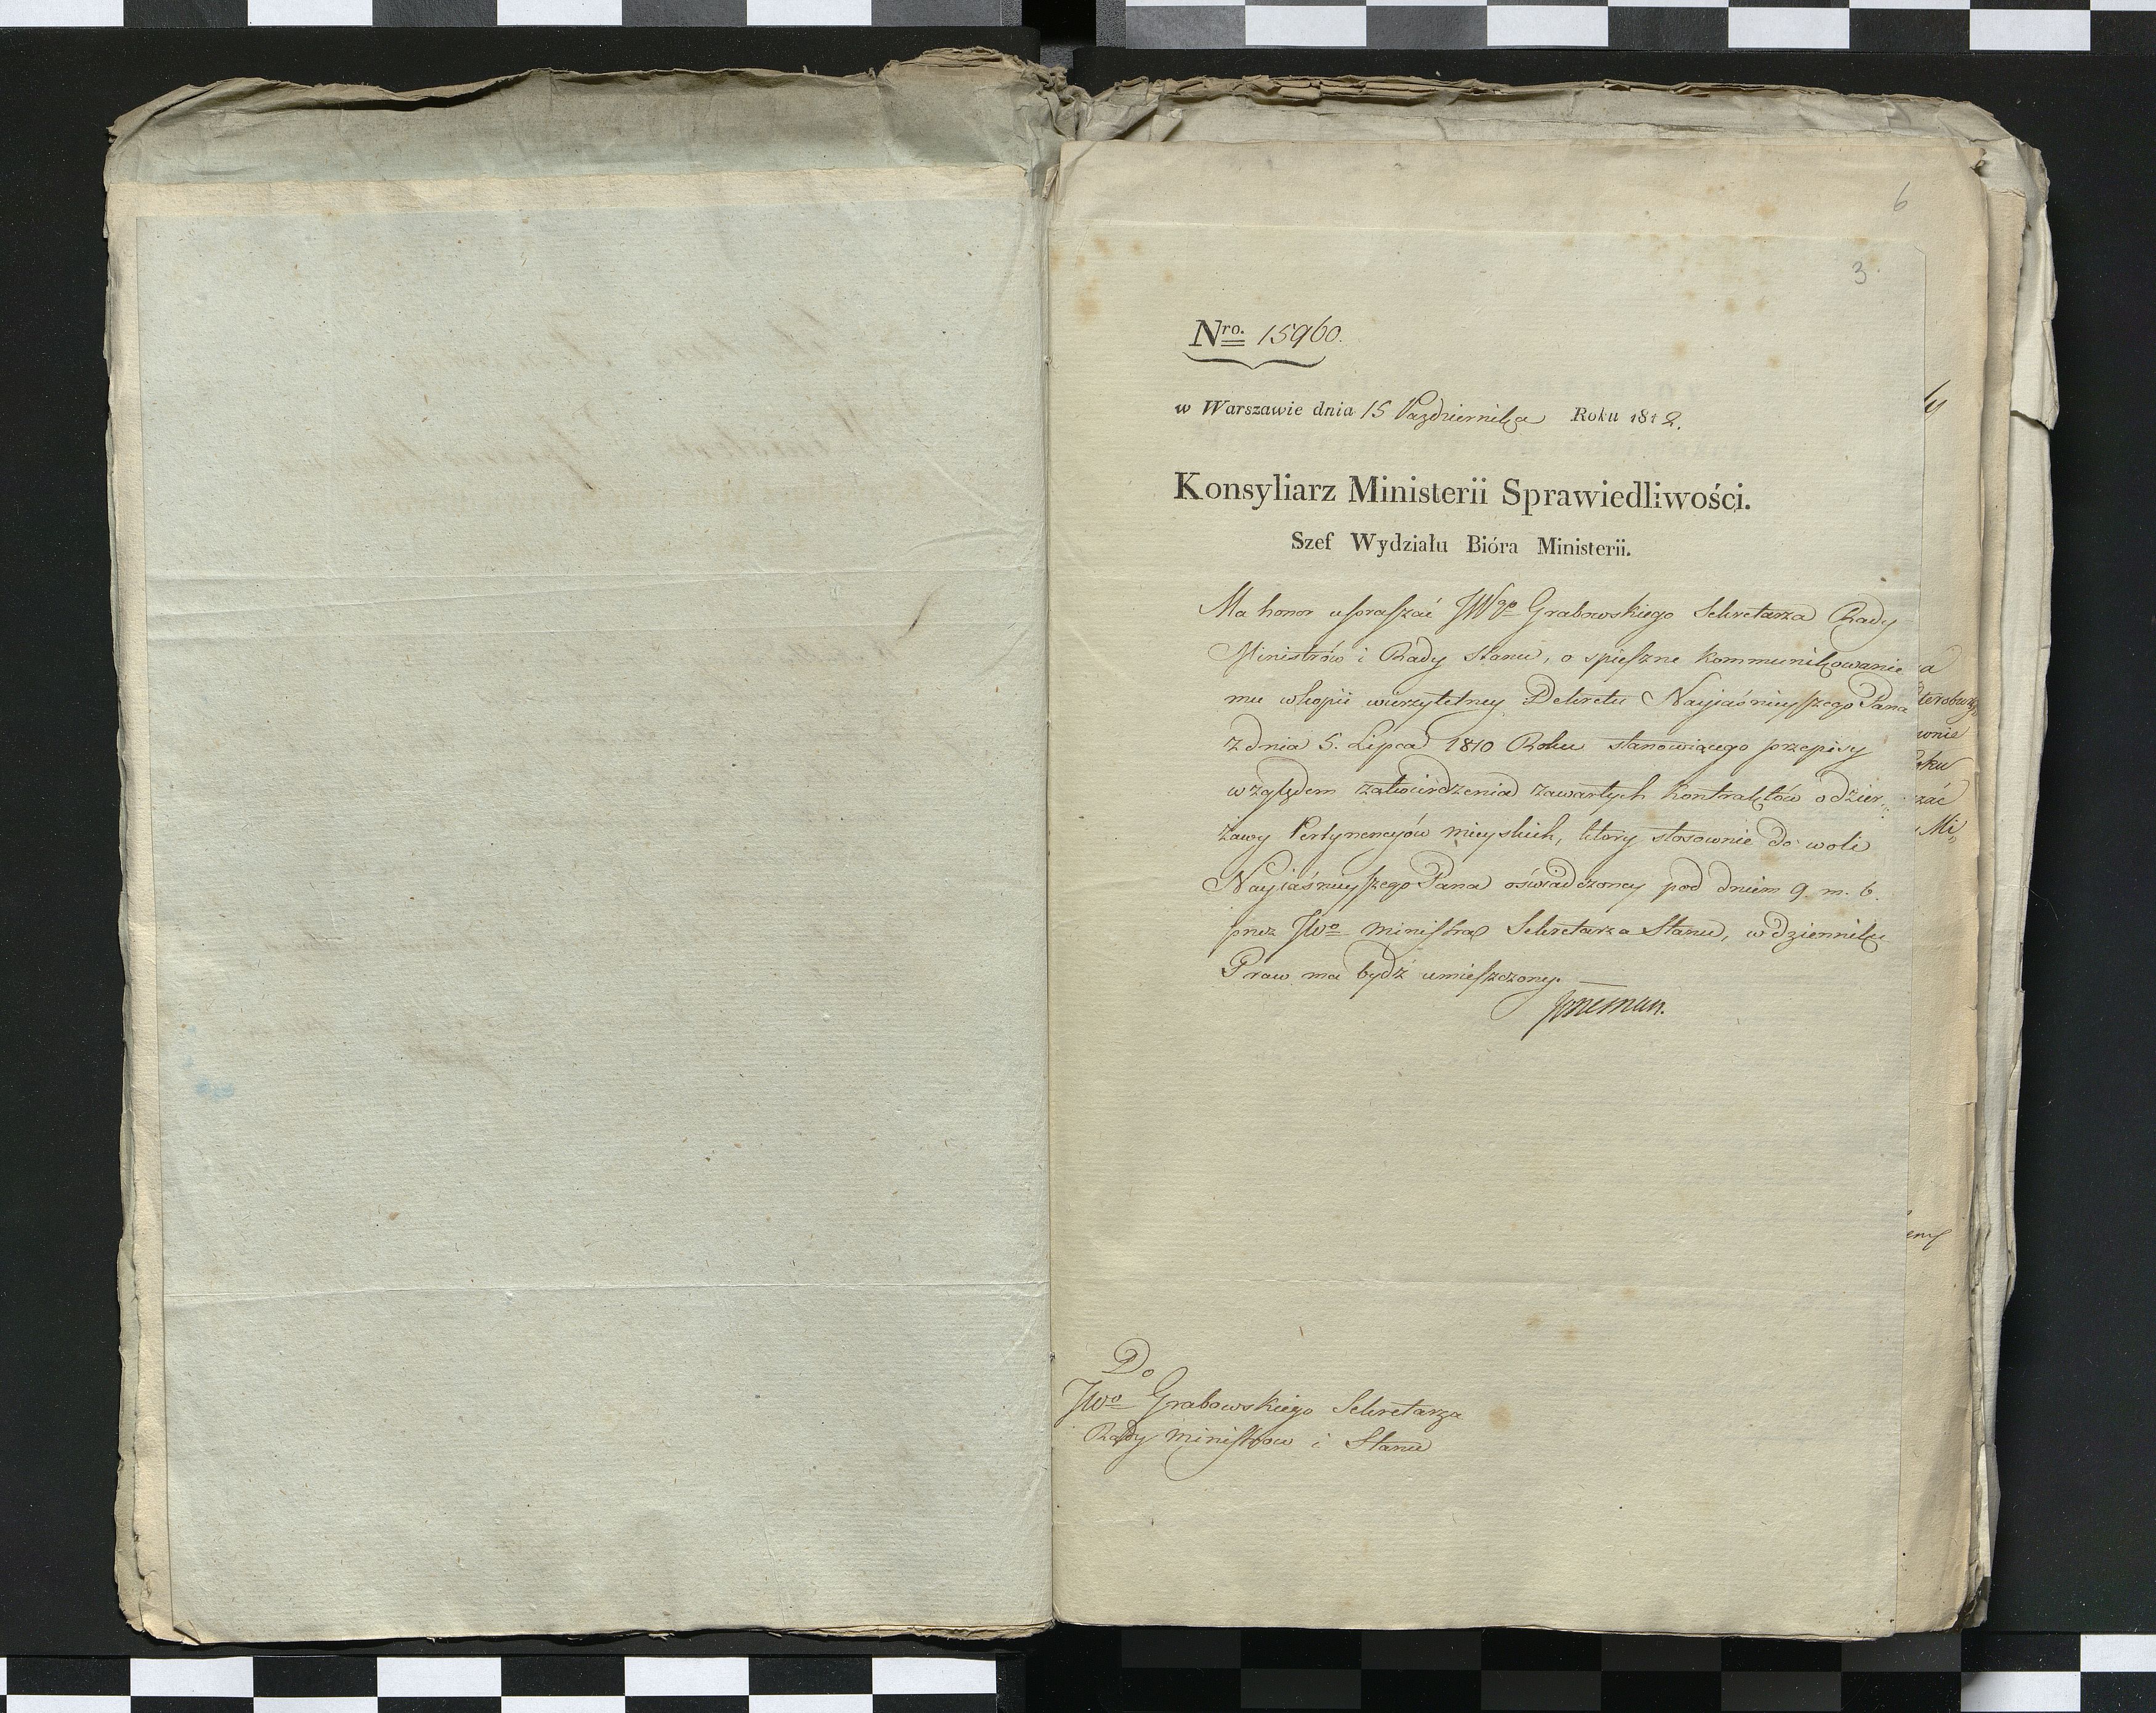 6
3.
Nro. 15960.
w Warszawie dnia 15 Pazdziernika Roku 1812.
Konsyliarz Ministerii Sprawiedliwości.
Szef Wydziału Bióra Ministerii.
Ma honor upraszać JWgo Grabowskiego Sekretarza Rady
Ministrów i Rady Stanu, o spieszne kommunikowanie
mu w kopii wierzytelney Dekretu Nayiaśnieyszego Pana
z dnia 5. Lipca 1810 Roku stanowiącego przepisy
względem zatwierdzenia zawartych Kontraktów o dzier„
żawy Pertynencyów mieyskich, który stosownie do woli
Nayiaśnieyszego Pana oświadczoney pod dniem 9. m. b.
przez JWo Ministra Sekretarza Stanu, w dzienniku
Praw ma bydź umieszczony.
Do
JWo Grabowskiego Sekretarza
Rady Ministrow i Stanu